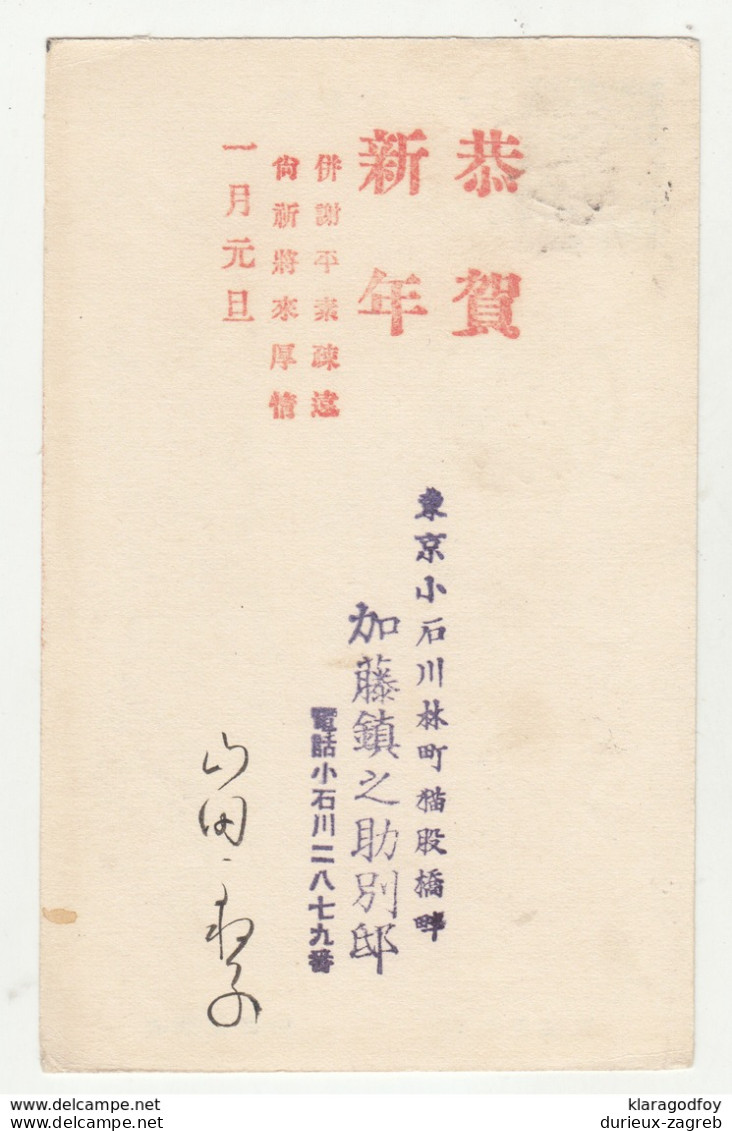 恭賀
新年
併謝平素疎遠
尙祈將來厚情
一月元旦
東京小石川林町猫股橋畔
加藤鎮之助別邸
電話小石川二八七九番
山田
klaragodfoy
https://www.delcampe.net/en_GB/collectibles/user/durieux-zagreb